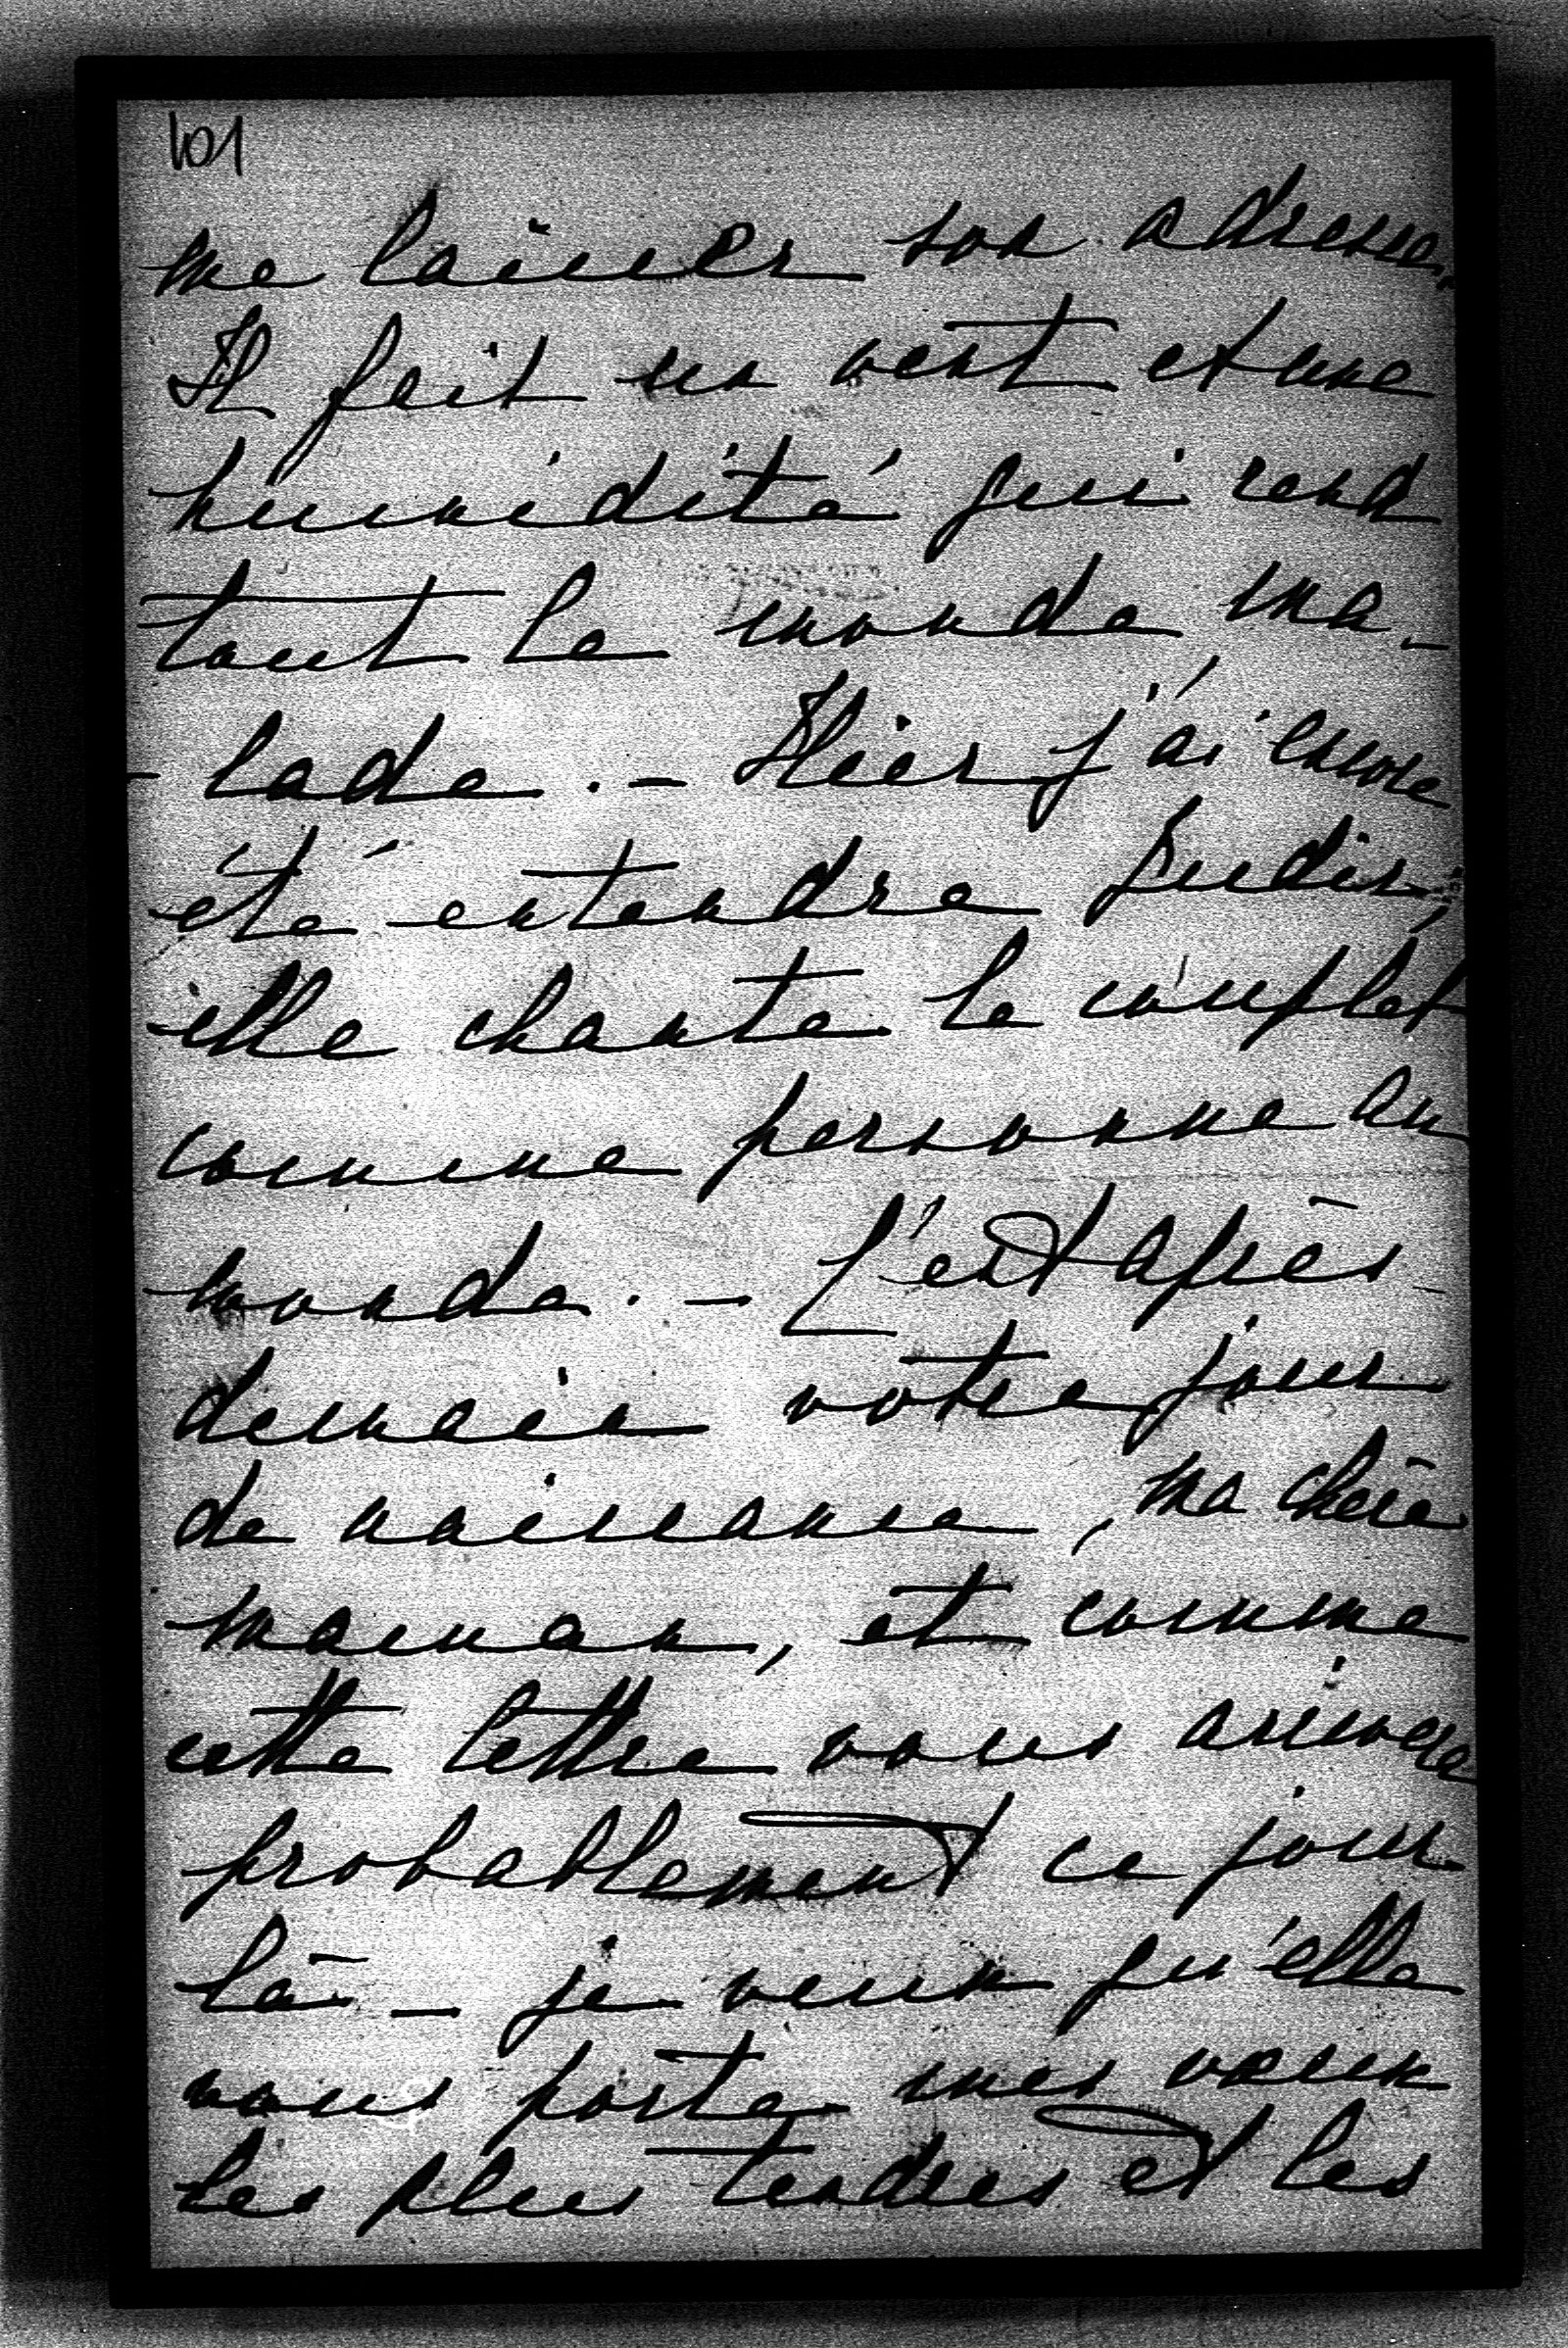 101
me laisser son adresse.
Il fait un vent et une
humidité qui rend
tout le monde ma-
- lade. - Hier j'ai encore
été entendre Judic;
elle chante le couplet
comme personne au
monde. - C'est après-
demain votre jour
de naissance, ma chère
maman, et comme
cette lettre vous arrivera
probablement ce jour
là - je veux qu'elle
vous porte mes vœux
les plus tendres et les